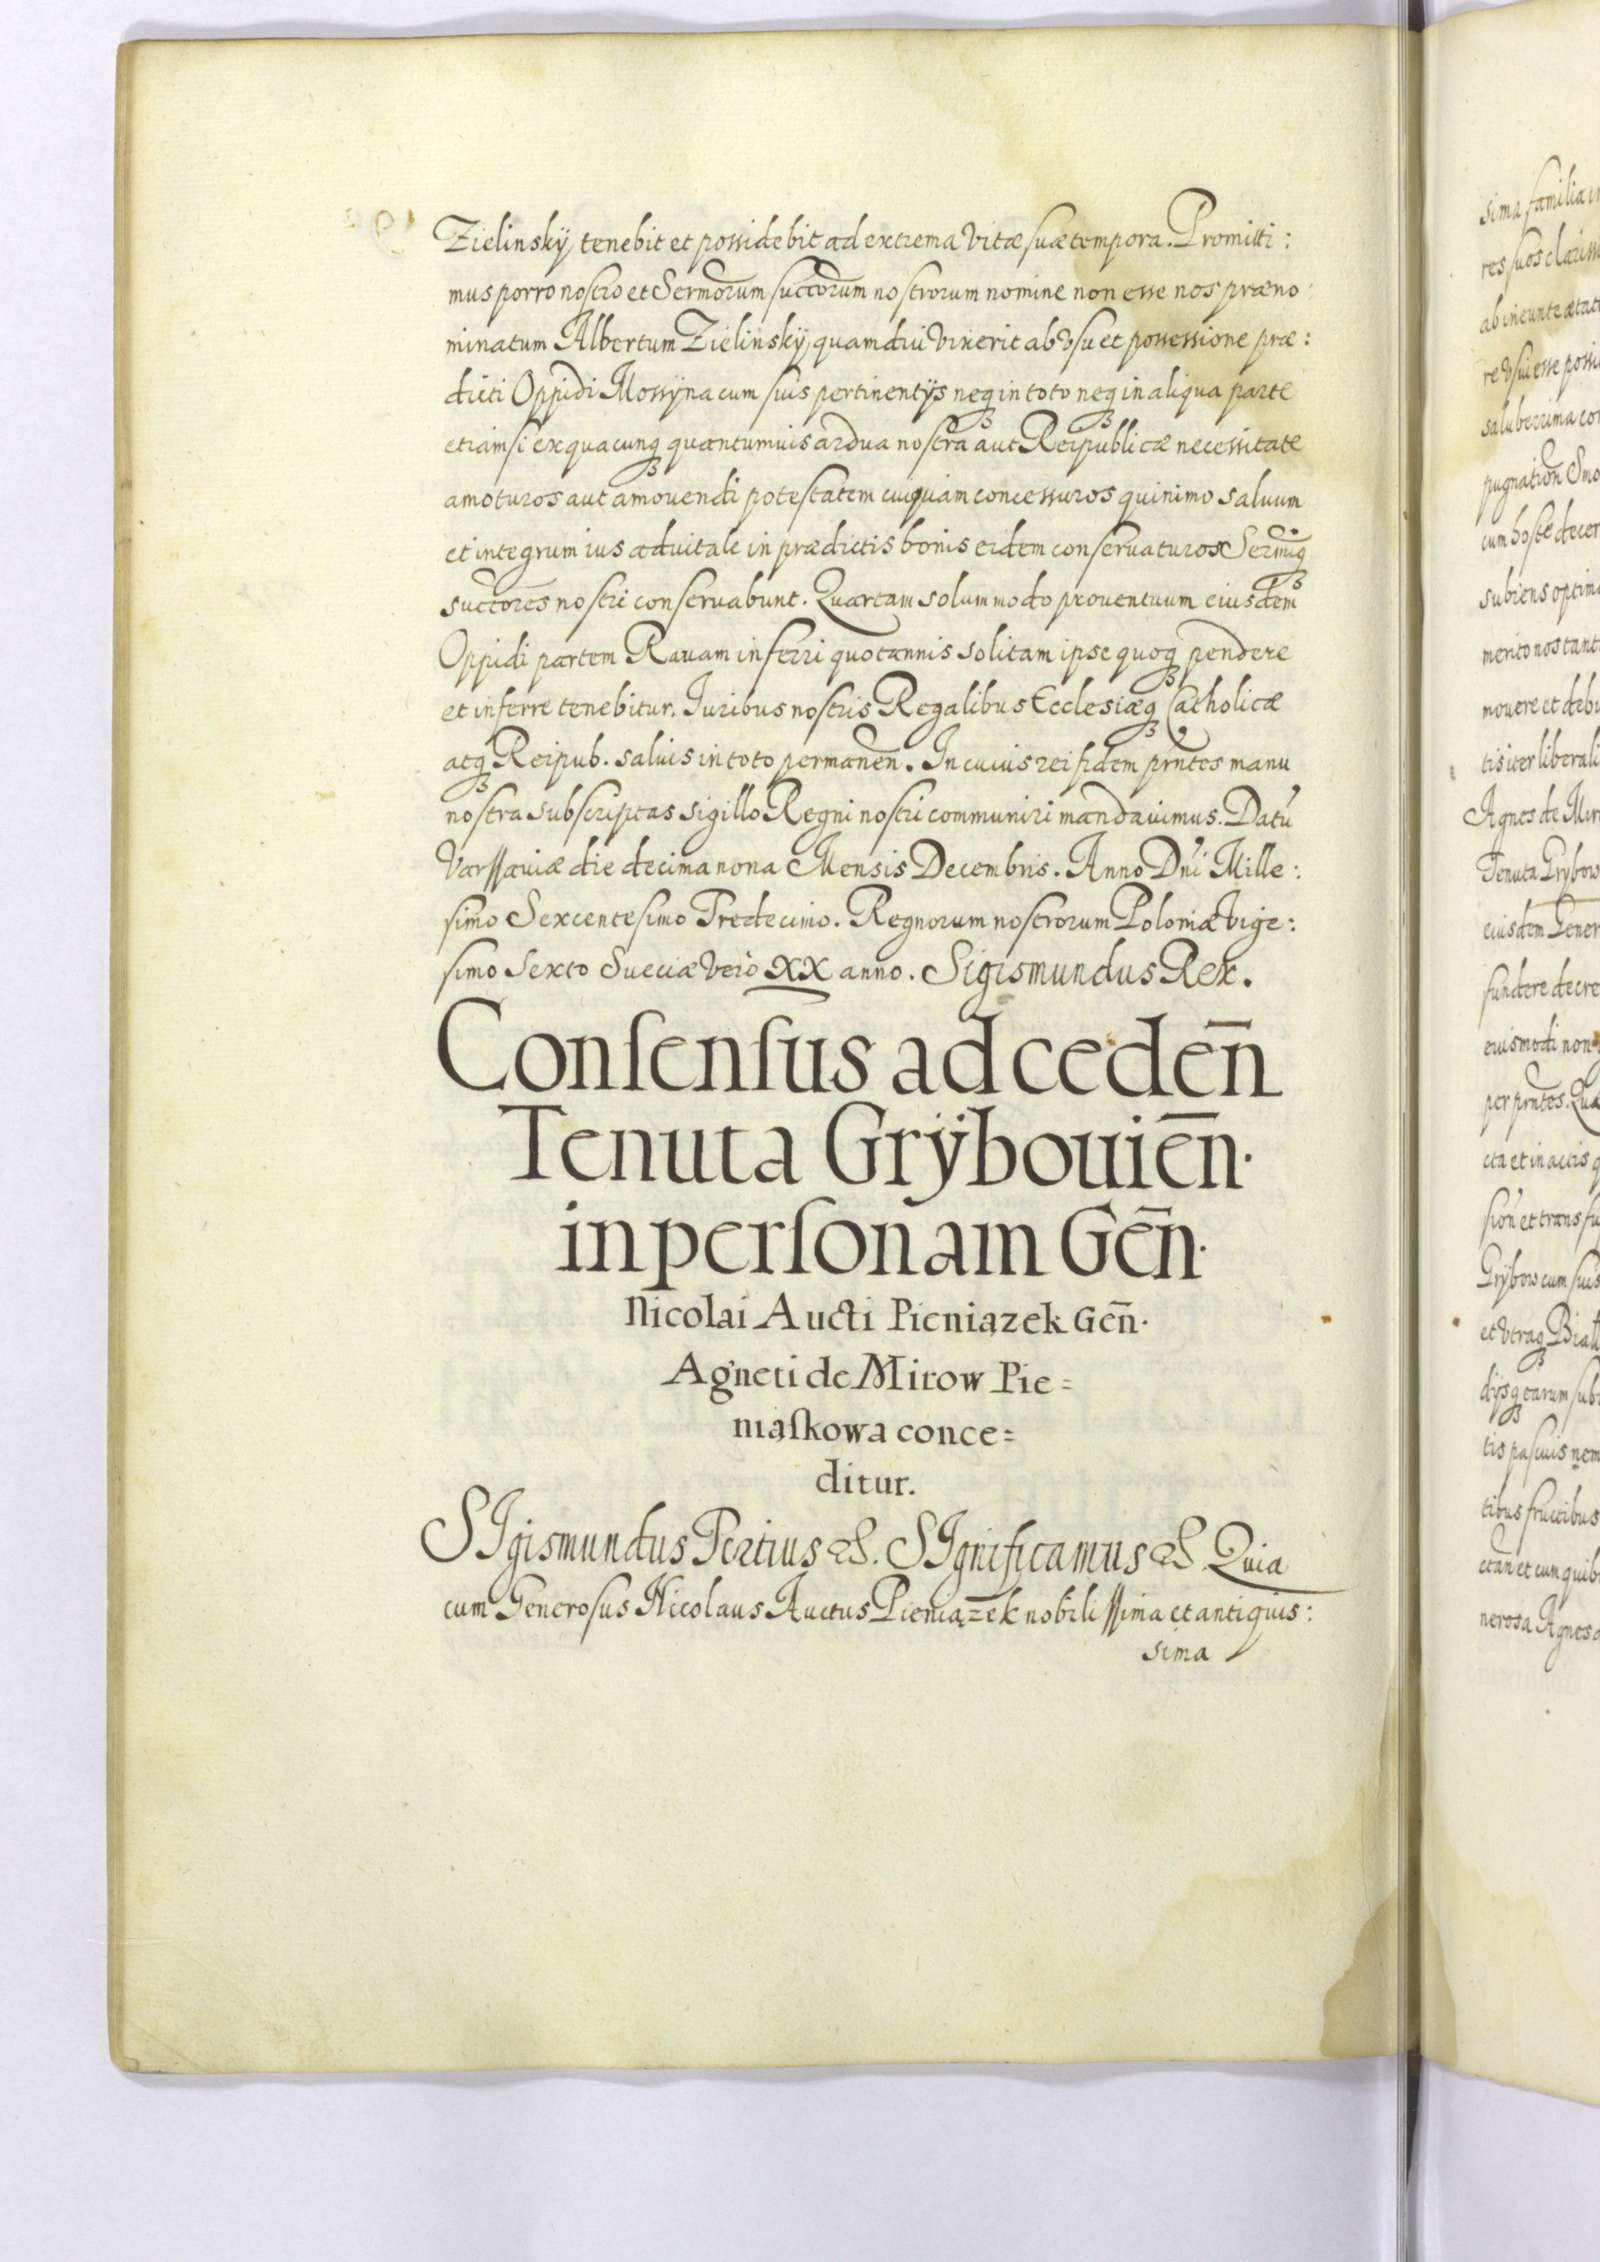 Zielinskÿ, tenebit et possidebit ad extrema vitæ suæ tempora. Promitti:
mus porro nostro et Sermorum succorum nostrorum nomine non esse nos præno:
minatum Albertum Zielinskÿ, quamdiu vixerit ab vsu et possessione præ:
dicti Oppidi Mossÿna cum suis pertinentÿs neqȝ in toto neqȝ in aliqua parte
etiamsi ex quacunqȝ quantumuis ardua nostra aut Reipublicæ necessitate
amoturos aut amouendi potestatem cuiquam concessuros quinimo saluum
et integrum ius aduitale in prædictis bonis eidem conseruaturos Sermiqȝ
succores nostri conseruabunt. Quartam solummodo prouentuum eiusdem
Oppidi partem Rauam inferri quotannis solitam ipse quoqȝ pendere
et inferre tenebitur. Iuribus nostris Regalibus Ecclesiæqȝ Catholicæ
atqȝ Reipub. saluis in toto permanen̄. In cuius rei fidem prntes manu
nostra subscriptas sigillo Regni nostri communiri mandauimus. Datū
Varssauiæ die decima nona Mensis Decembris. Anno Dni Mille:
simo Sexcentesimo Tredecimo. Regnorum nostrorum Poloniæ Vige:
simo Sexto Sueciæ vero XX anno. Sigismundus Rex.
Consensus ad ceden̄
Tenuta Grÿbouien̄.
in personam Gen̄.
Nicolai Aucti Pieniązek Gen̄.
Agneti de Mirow Pie=
niąskowa conce=
ditur.
SIgismundus Tertius &. SIgnificamus &. Quia
cum Generosus Nicolaus Auctus Pieniązek nobilissima et antiquis:
sima
sima familia
res suos clariss
ab ineunte ætat
re vsui esse poss
saluberrima co
pugnation Smo
cum hoste decer
subiens optim
merito nos tant
mouere et deb
tis iter liberali
Agnes de Mir
Tenuta Grÿbow
eiusdem Gener
fundere decre
euismodi non
per prntes. Qua
cta et in actis q
sion et transfu
Grÿbow cum suis
et vtraqȝ Biall
dÿsqȝ earum sub
tis pascuis nem
tibus fructibus
ctan et cum quib
nerosa Agnes a